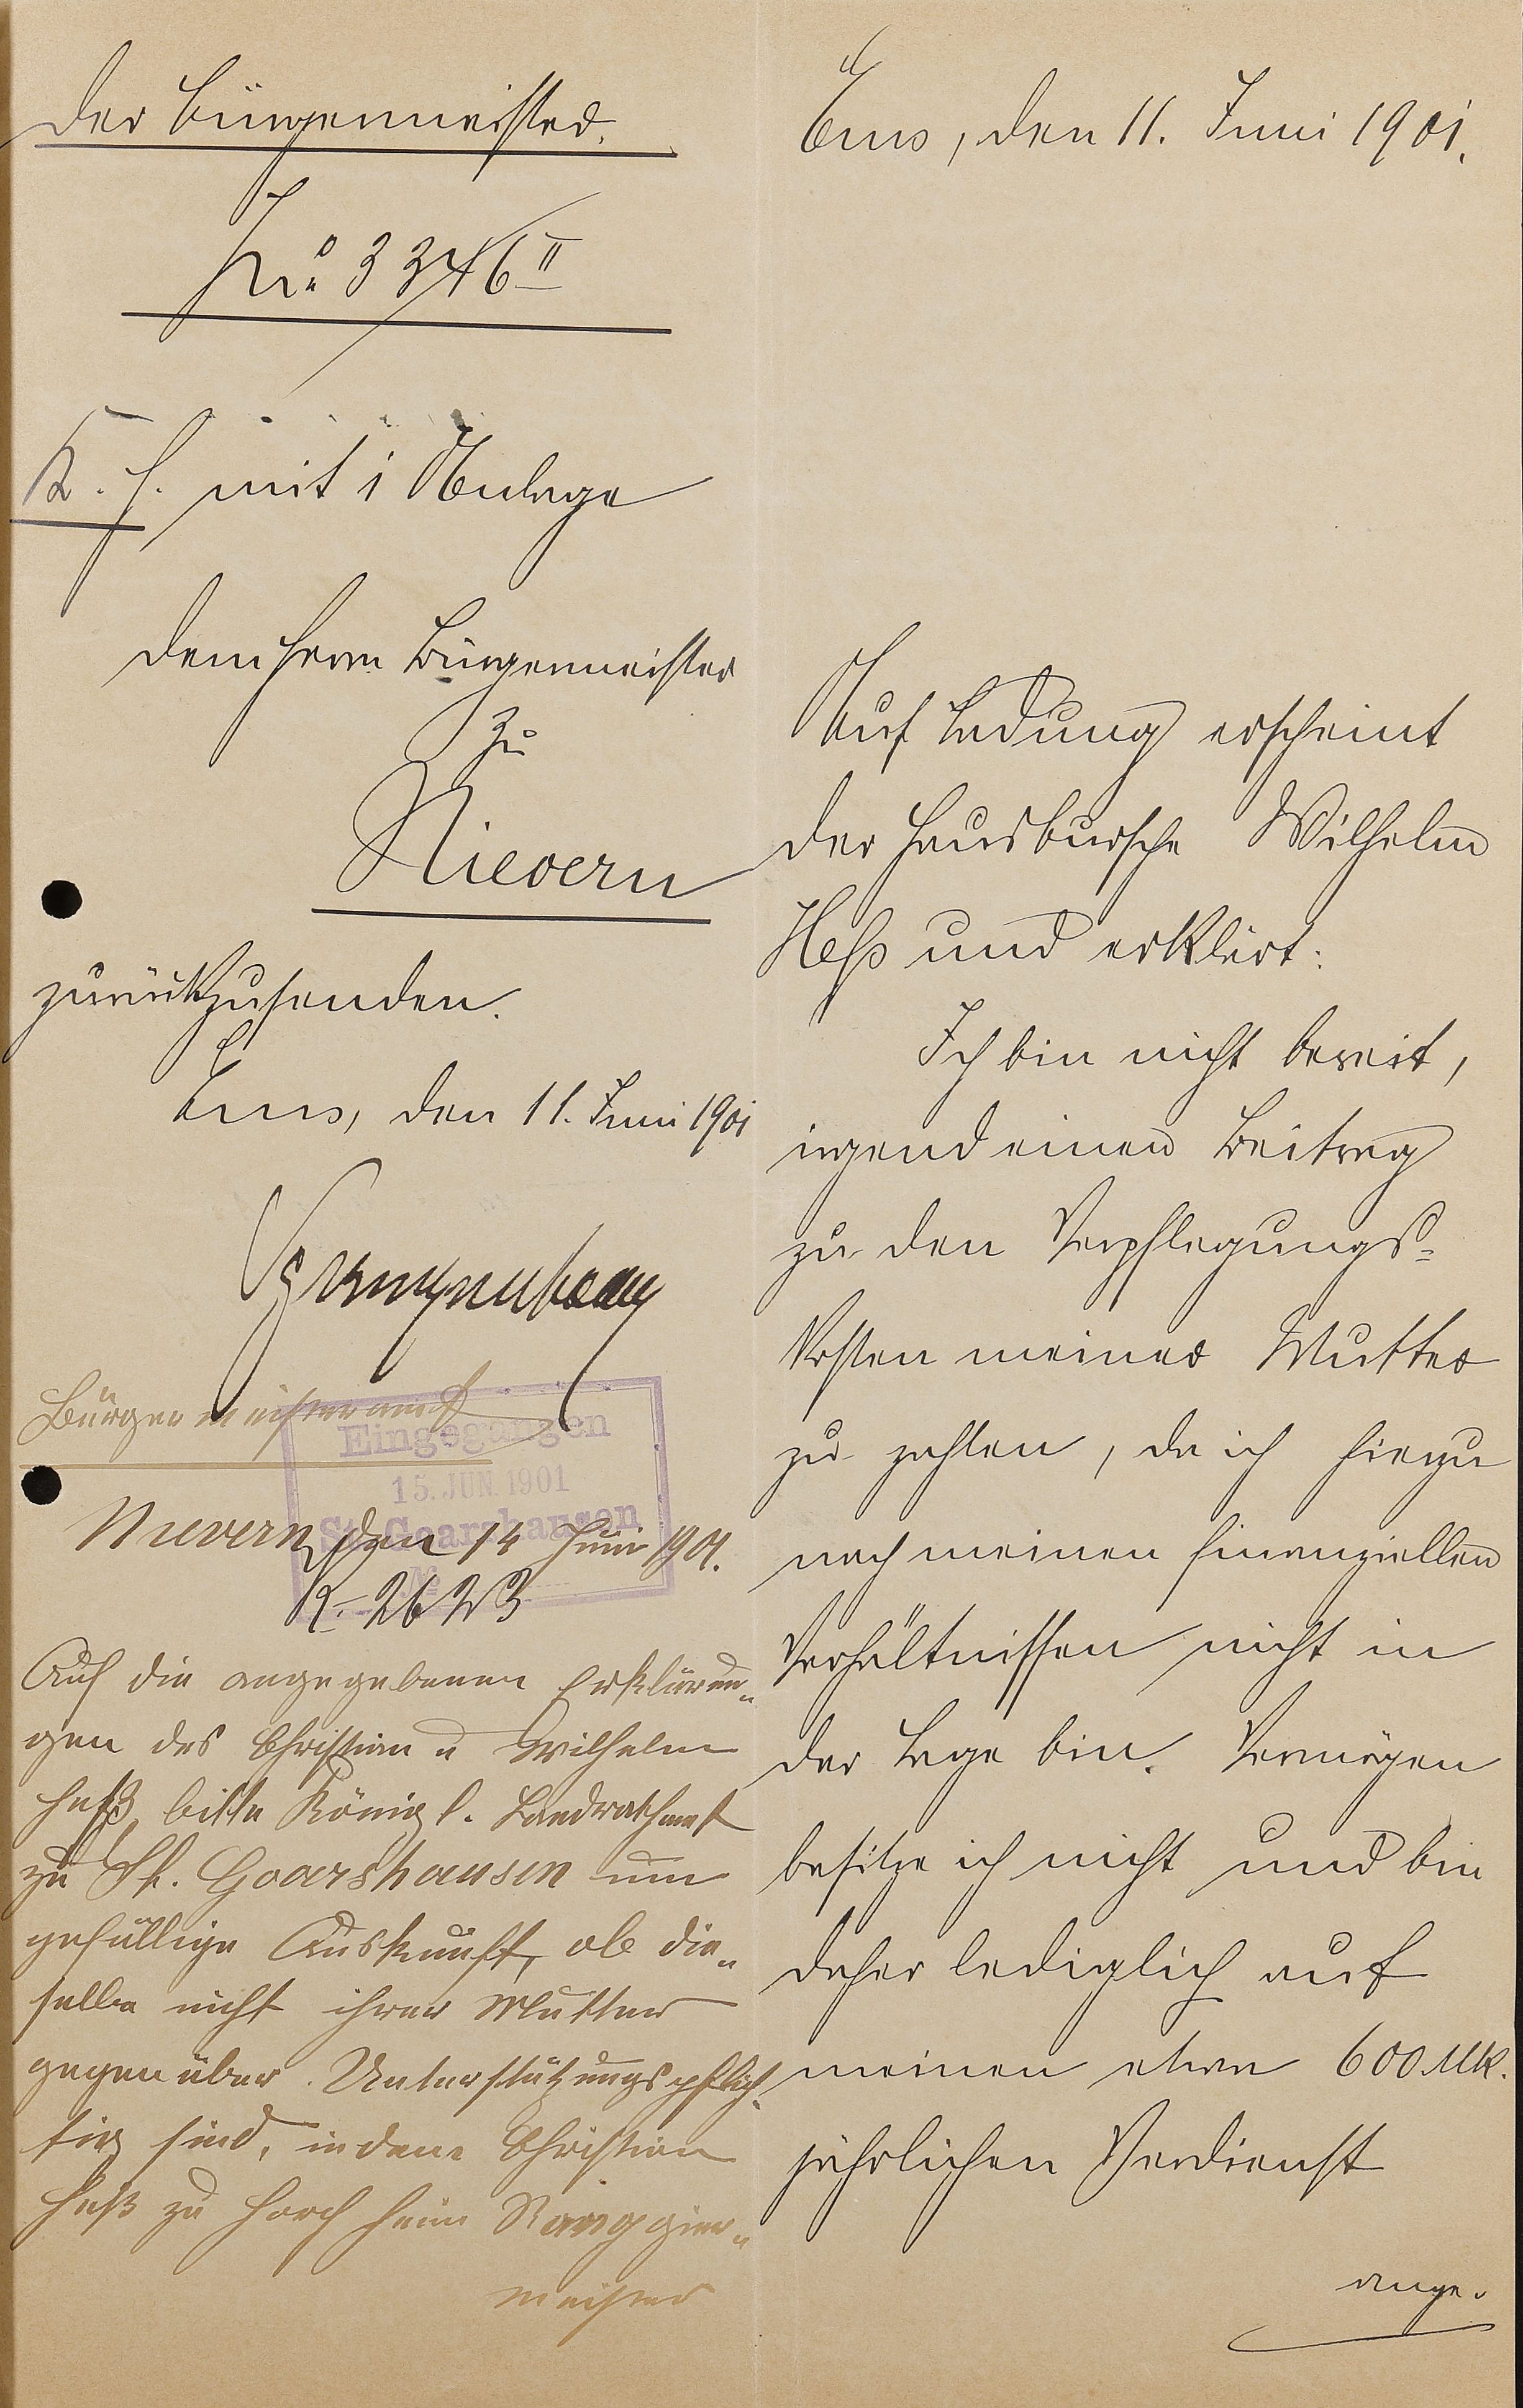 Der Bürgermeister.
J. No. 3346 II
K. H. mit 1 Anlage
dem Herrn Bürgermeister
zu
Nievern
zurückzusenden.
Ems, den 11. Juni 1901
Bürgermeisteramt
Eingegangen
15. JUN. 1901
St. Goarshausen
Nievern, den 14 Juni 1901.
K. 2623
Auf die angegebenen Erklärun„
gen des Christian u Wilhelm
Heß, bitte Königl. Landrathsamt
zu St. Goarshausen um
gefällige Auskunft, ob die„
selbe nicht ihrer Mutter
gegenüber Unterstützungspflich„
tig sind, indem Christian
Heß zu Horchheim Ranggier„
meister
Ems, den 11. Juni 1901.
Auf Ladung erscheint
der Hausbursche Wilhelm
Heß und erklärt:
Ich bin nicht bereit,
irgend einen Beitrag
zu den Verpflegungs-
kosten meiner Mutter
zu zahlen, da ich hierzu
nach meinen finanziellen
Verhältnissen nicht in
der Lage bin. Vermögen
besitze ich nicht und bin
daher lediglich auf
meinen etwa 600 Mk.
jährlichen Verdienst
ange.